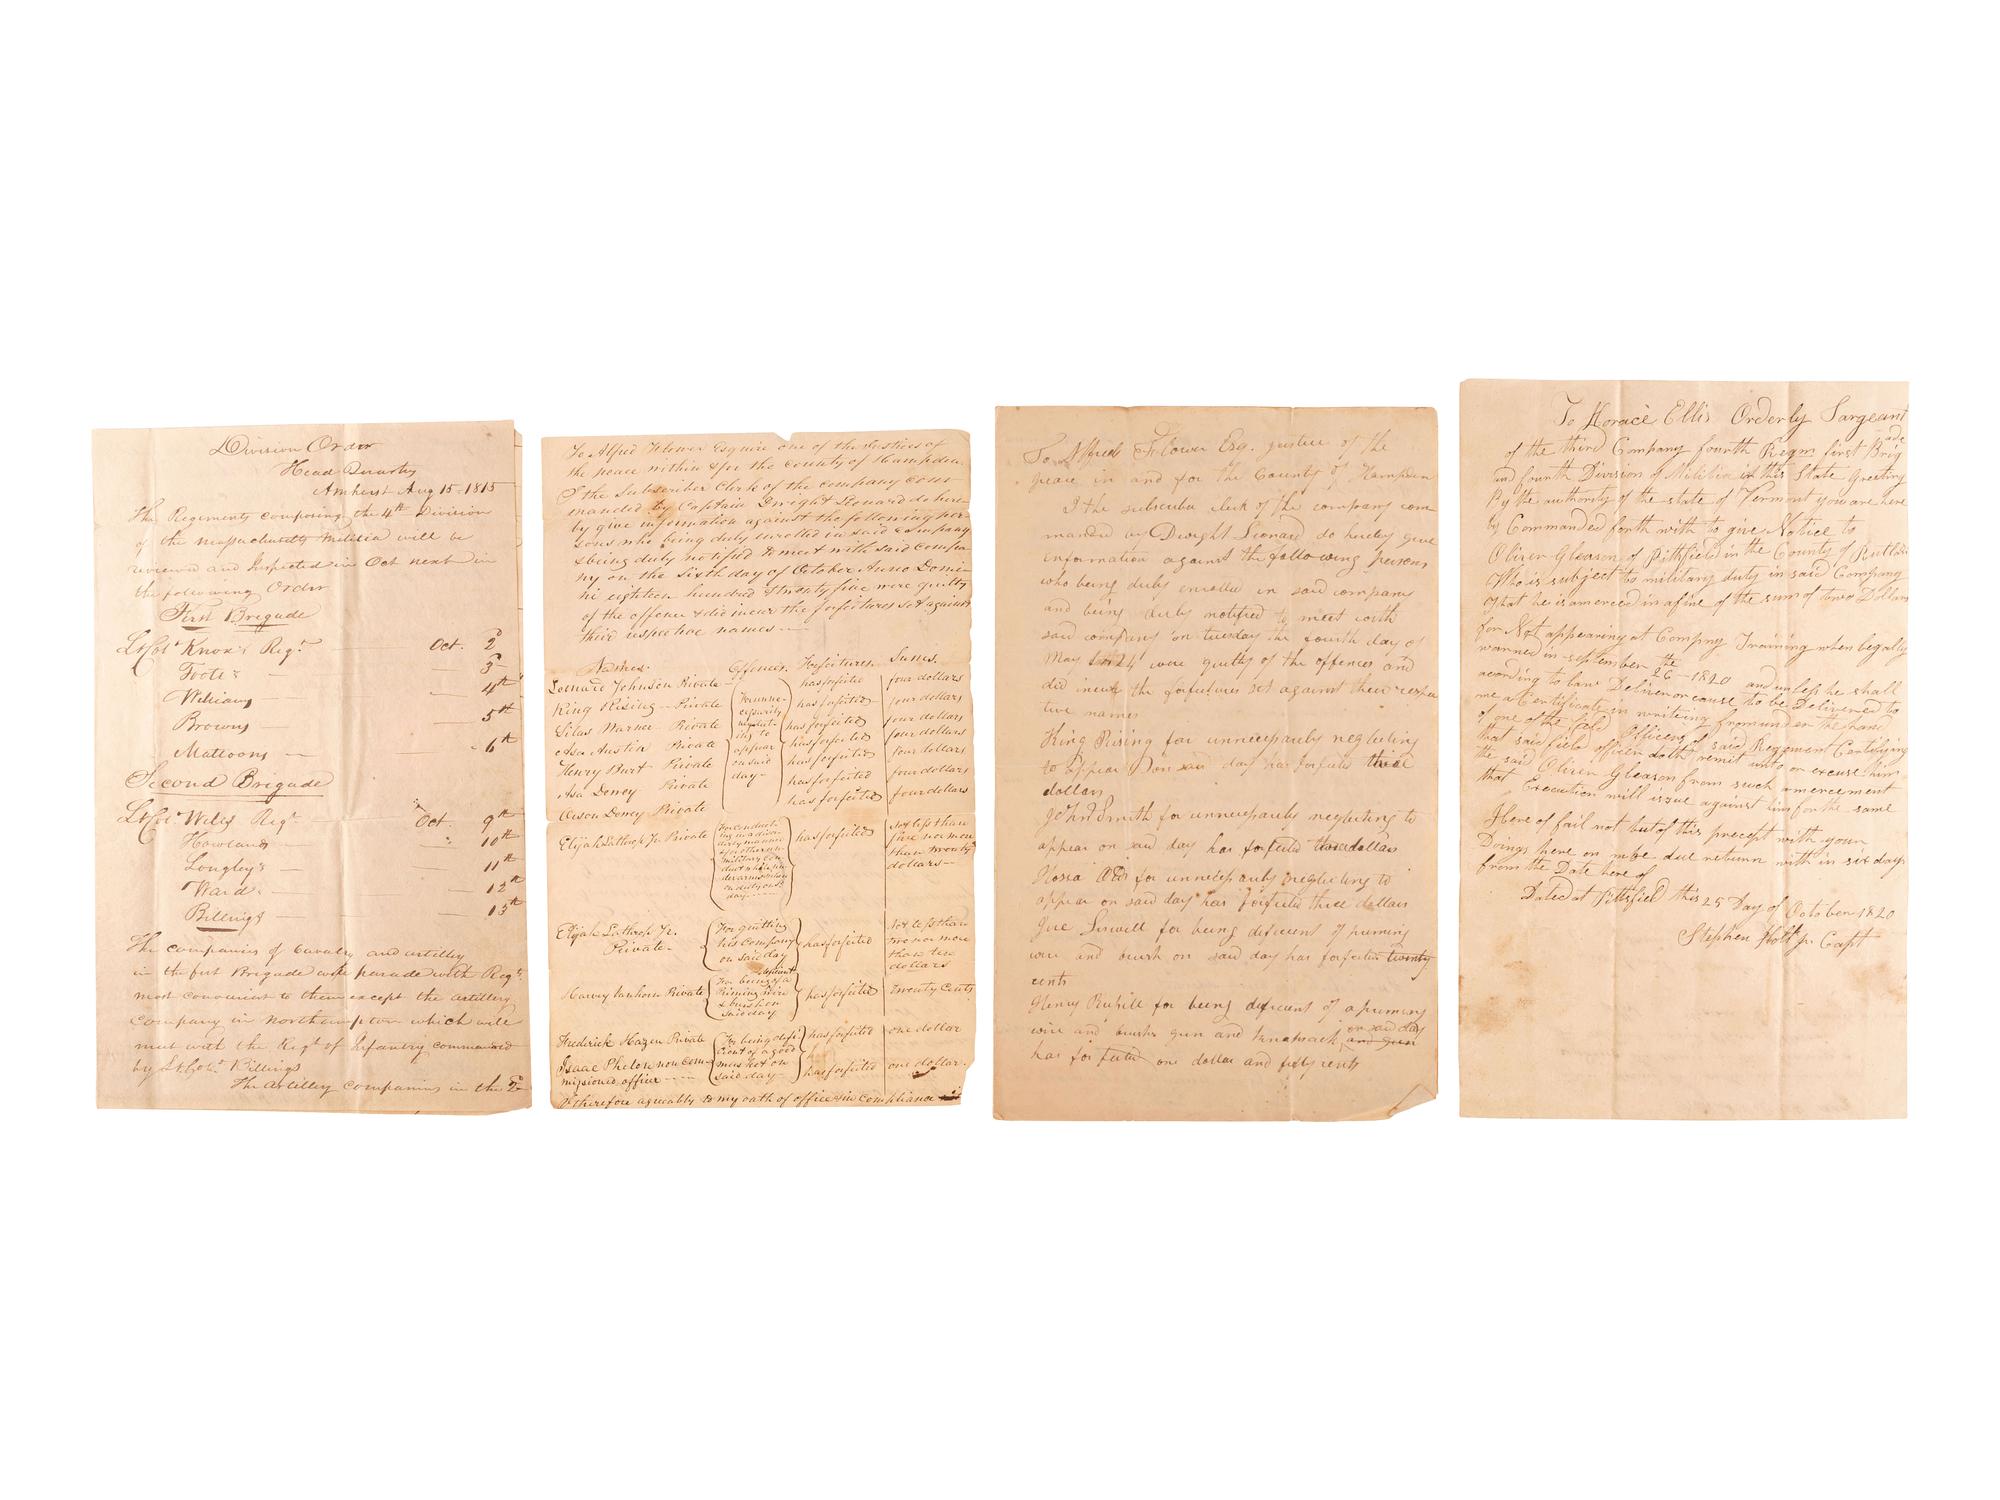 Division Order
Head Quarters
Amherst Aug 15 - 1815
The Regiments composing the 4th Division
of the Massachusetts Militia will be
reviewed and Inspected in Oct next in
the following Order
First Brigade
Lt Col Knox's Regt. Oct. 2d
Foote's 3d
Williams 4th
Browns 5th
Mattoons 6th
Second Brigade
Lt Col. Wells Regt. Oct. 9th
Howlands 10th
Longley's 11th
Ward's 12th
Billings 13th
The companies of Cavalry and artillery
in the first Brigade will parade with Regts.
most convenient to them except the artillery
company in Northampton which will
meet with the Regt of Infantry commanded
by Lt Col. Billings
The artillery companies in the 2d
To Alfred Flower Esquire one of the Justices of
the peace within & for the county of Hampden
I the Subscriber Clerk of the company com
manded by Captain Dwight Leonard do here-
by give information against the following per-
sons who being duly enrolled in said company
& being duly notified to meet with said Compa-
ny on the Sixth day of October Anno Domi-
ni eighteen hundred & twenty five were guilty
of the offences & did incur the forfeitures set against
their respective names
Names. Offences. Forfeitures. Sums.
Leonard Johnson Private has forfeited four dollars
King Rising Private has forfeited four dollars
Silas Warner Private has forfeited four dollars
Asa Austin Private has forfeited four dollars
Henry Burt Private has forfeited four dollars
Asa Dewey Private has forfeited four dollars
Orson Dewey Private has forfeited four dollars
For unne-
cessarily
neglect-
ing to
appear
on said
day
Elijah Lathrop Jr. Private has forfeited
For conduct-
ing in a disor-
derly manner
& for other un
military con-
duct while un
der arms & being
on duty on sd
day
Not less than
five nor more
than twenty
dollars
Elijah Lathrop Jr.
Private
For quitting
his company
on said day
has forfeited
Not less than
two nor more
than ten
dollars
Harvey Vanhorn Private
For being deficient
of a
Priming wire
& brush on
said day
has forfeited twenty cents
Frederick Hazen Private has forfeited one dollar
Isaac Phelon non com-
missioned officer has forfeited one dollar.
For being defi-
cient of a good
musket on
said day
I therefore agreeably to my oath of office & in compliance
To Alfred Flower Esq. justice of the
peace in and for the County of Hampden
I the subscriber clerk of the company com
manded by Dwight Leonard do hereby give
information against the following persons
who being duly enrolled in said company
and being duly notified to meet with
said company on tuesday the fourth day of
May 1824 were guilty of the offences and
did incur the forfeitures set against their respec
tive names
King Rising for unnecessarily neglecting
to appear on said day has forfeited three
dollars
John Smith for unnecessarily neglecting to
appear on said day has forfeited three dollars
for unnecessarily neglecting to
appear on said day has forfeited three dollars
for being deficient of priming
wire and brush on said day has forfeited twenty
cents
Henry for being deficient of a priming
wire and brush gun and knapsack on said day and gun
has forfeited one dollar and fifty cents
To Horace Ellis Orderly Sargeant
of the third Company fourth Regm first Brigade
and fourth Division of Militia in this State Greeting
By the authority of the state of Vermont you are here
by Commanded forth with to give Notice to
Oliver Gleason of Pittsfield in the County of Rutland
Who is subject to military duty in said Company
that he is amerced in a fine of the sum of two Dollars
for Not appearing at Company Training when legally
warned in september the 26 - 1820 and unless he shall
acording to law Deliver or cause to be Delivered to
me a Certificate in writeing from under the hand
of one of the feld Officers of said Regement Certifying
that said field officer doth remit unto or excuse him
the said Oliver Gleason from such amercement
that Execution will issue against him for the same
Here of fail not but of this precept with your
Doings here on make due return with in six days
from the Date here of
Dated at Pittsfield this 25 Day of October 1820
Stephen Holt jr Capt